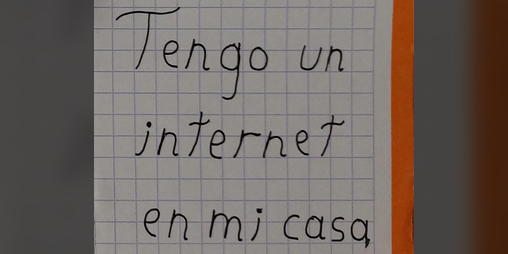 Tengo un
internet
en mi casa